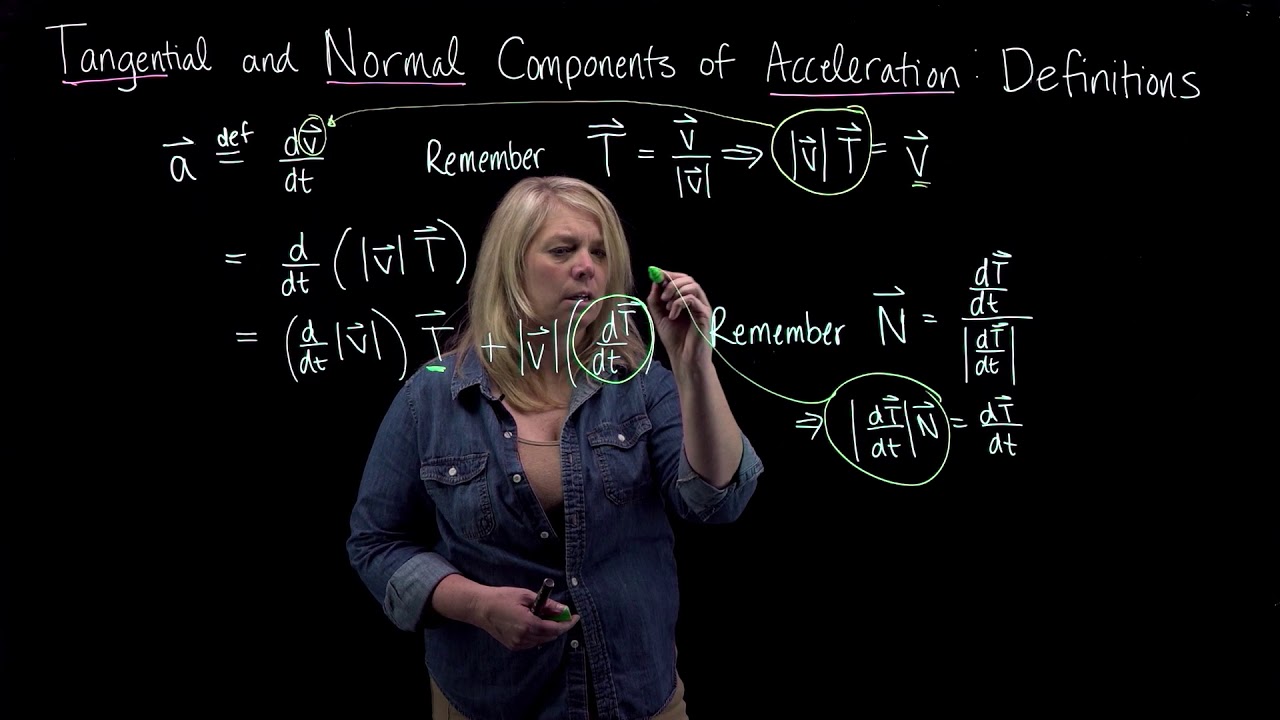 Tangential and Normal Components of Acceleration: Definitions
a⃗ def= dv⃗/dt Remember T⃗ = v⃗/|v⃗| ⇒ |v⃗| T⃗ = v⃗
= d/dt (|v⃗| T⃗)
= (d/dt |v⃗|) T⃗ + |v⃗| (dT⃗/dt) Remember N⃗ = (dT⃗/dt)/|dT⃗/dt|
⇒ |dT⃗/dt| N⃗ = dT⃗/dt